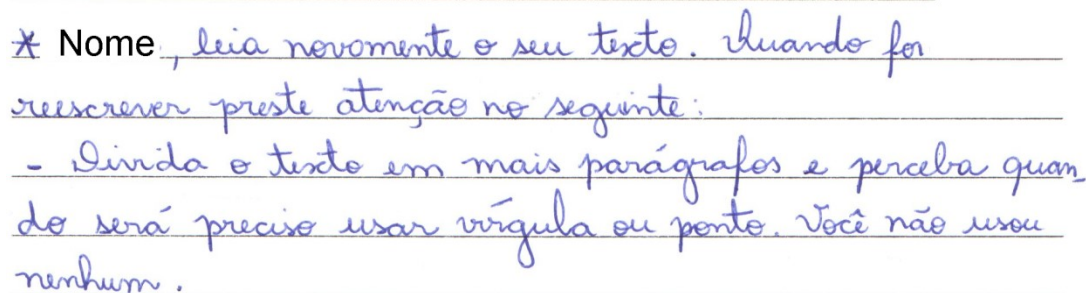 * Nome, leia novamente o seu texto. Quando for
reescrever preste atenção no seguinte:
- Divida o texto em mais parágrafos e perceba quan-
do será preciso usar vírgula ou ponto. Você não usou
nenhum.